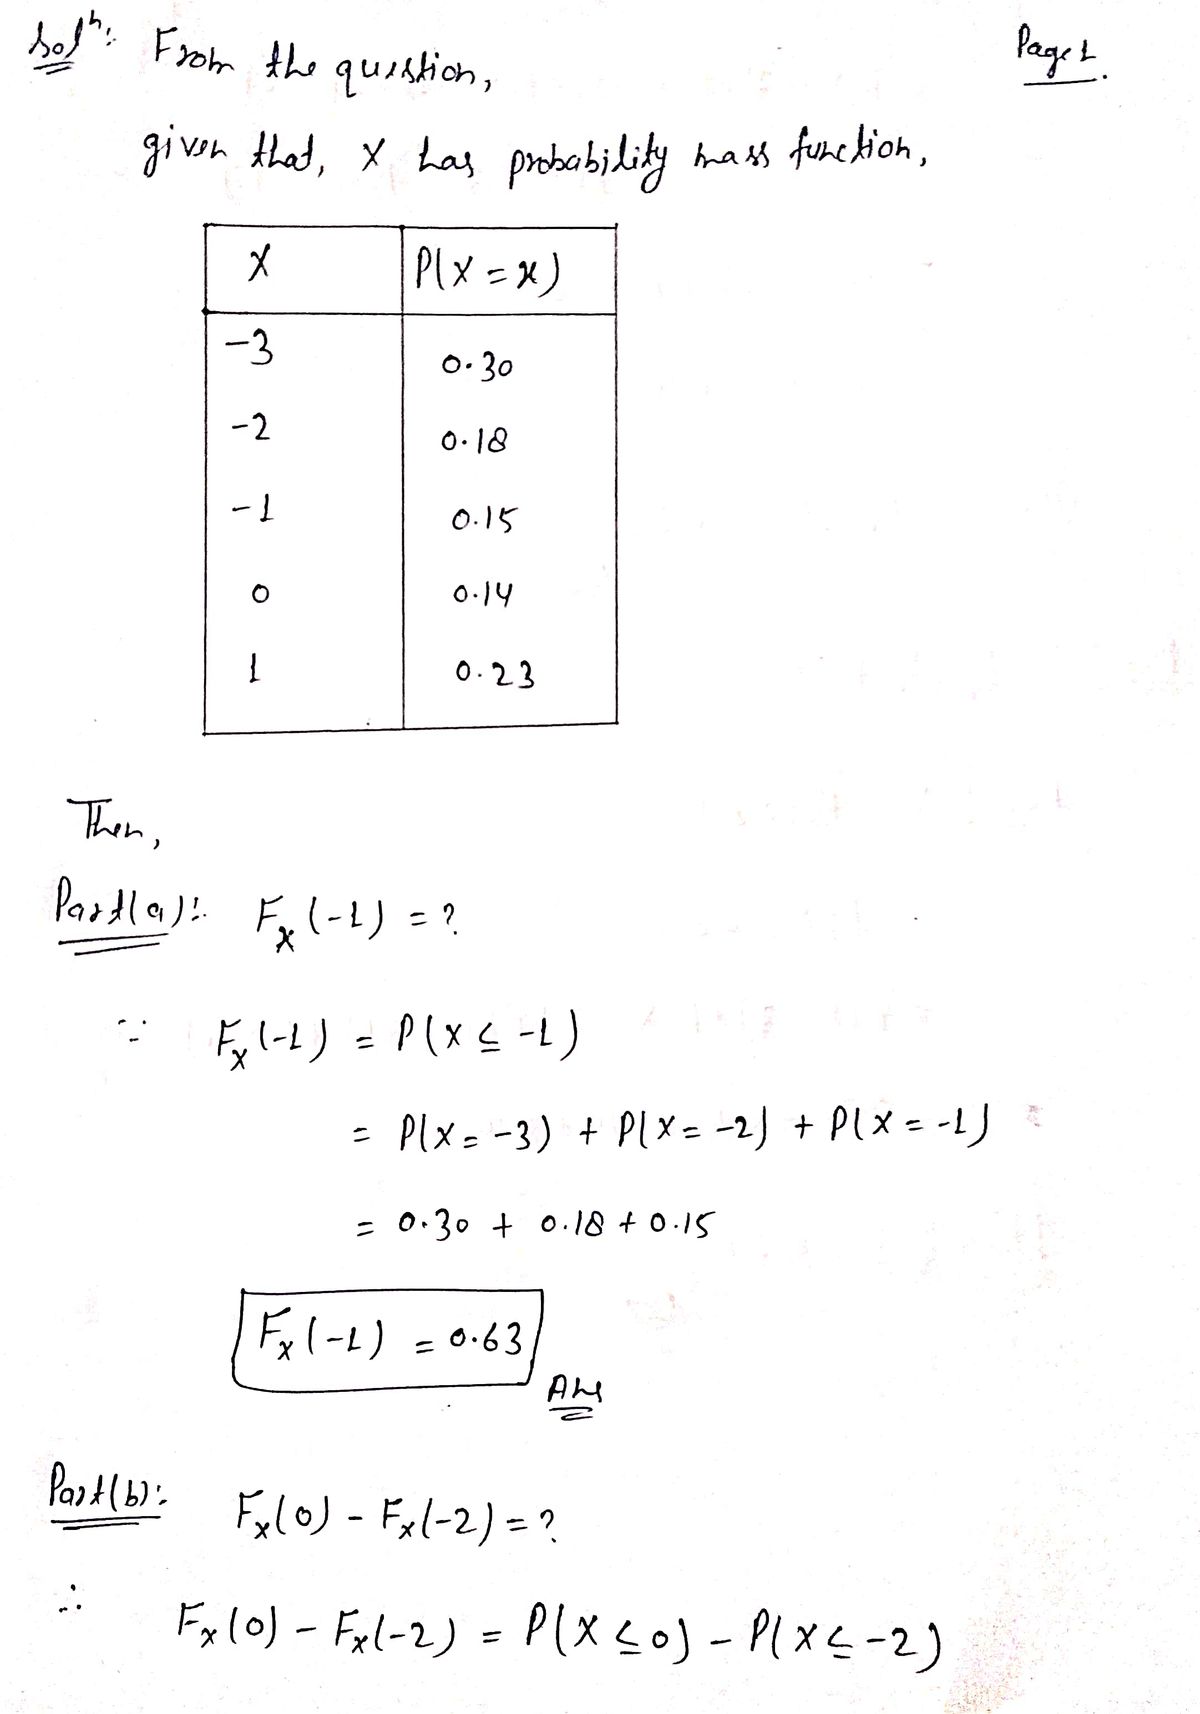 Solⁿ: From the question,
Page 1.
given that, X has probability mass function,
X P(X = x)
-3 0.30
-2 0.18
-1 0.15
0 0.14
1 0.23
Then,
Part(a):. Fx(-1) = ?
∵ Fx(-1) = P(X ≤ -1)
= P(X = -3) + P(X = -2) + P(X = -1)
= 0.30 + 0.18 + 0.15
Fx(-1) = 0.63
Ans
Part(b): Fx(0) - Fx(-2) = ?
∴ Fx(0) - Fx(-2) = P(X ≤ 0) - P(X ≤ -2)